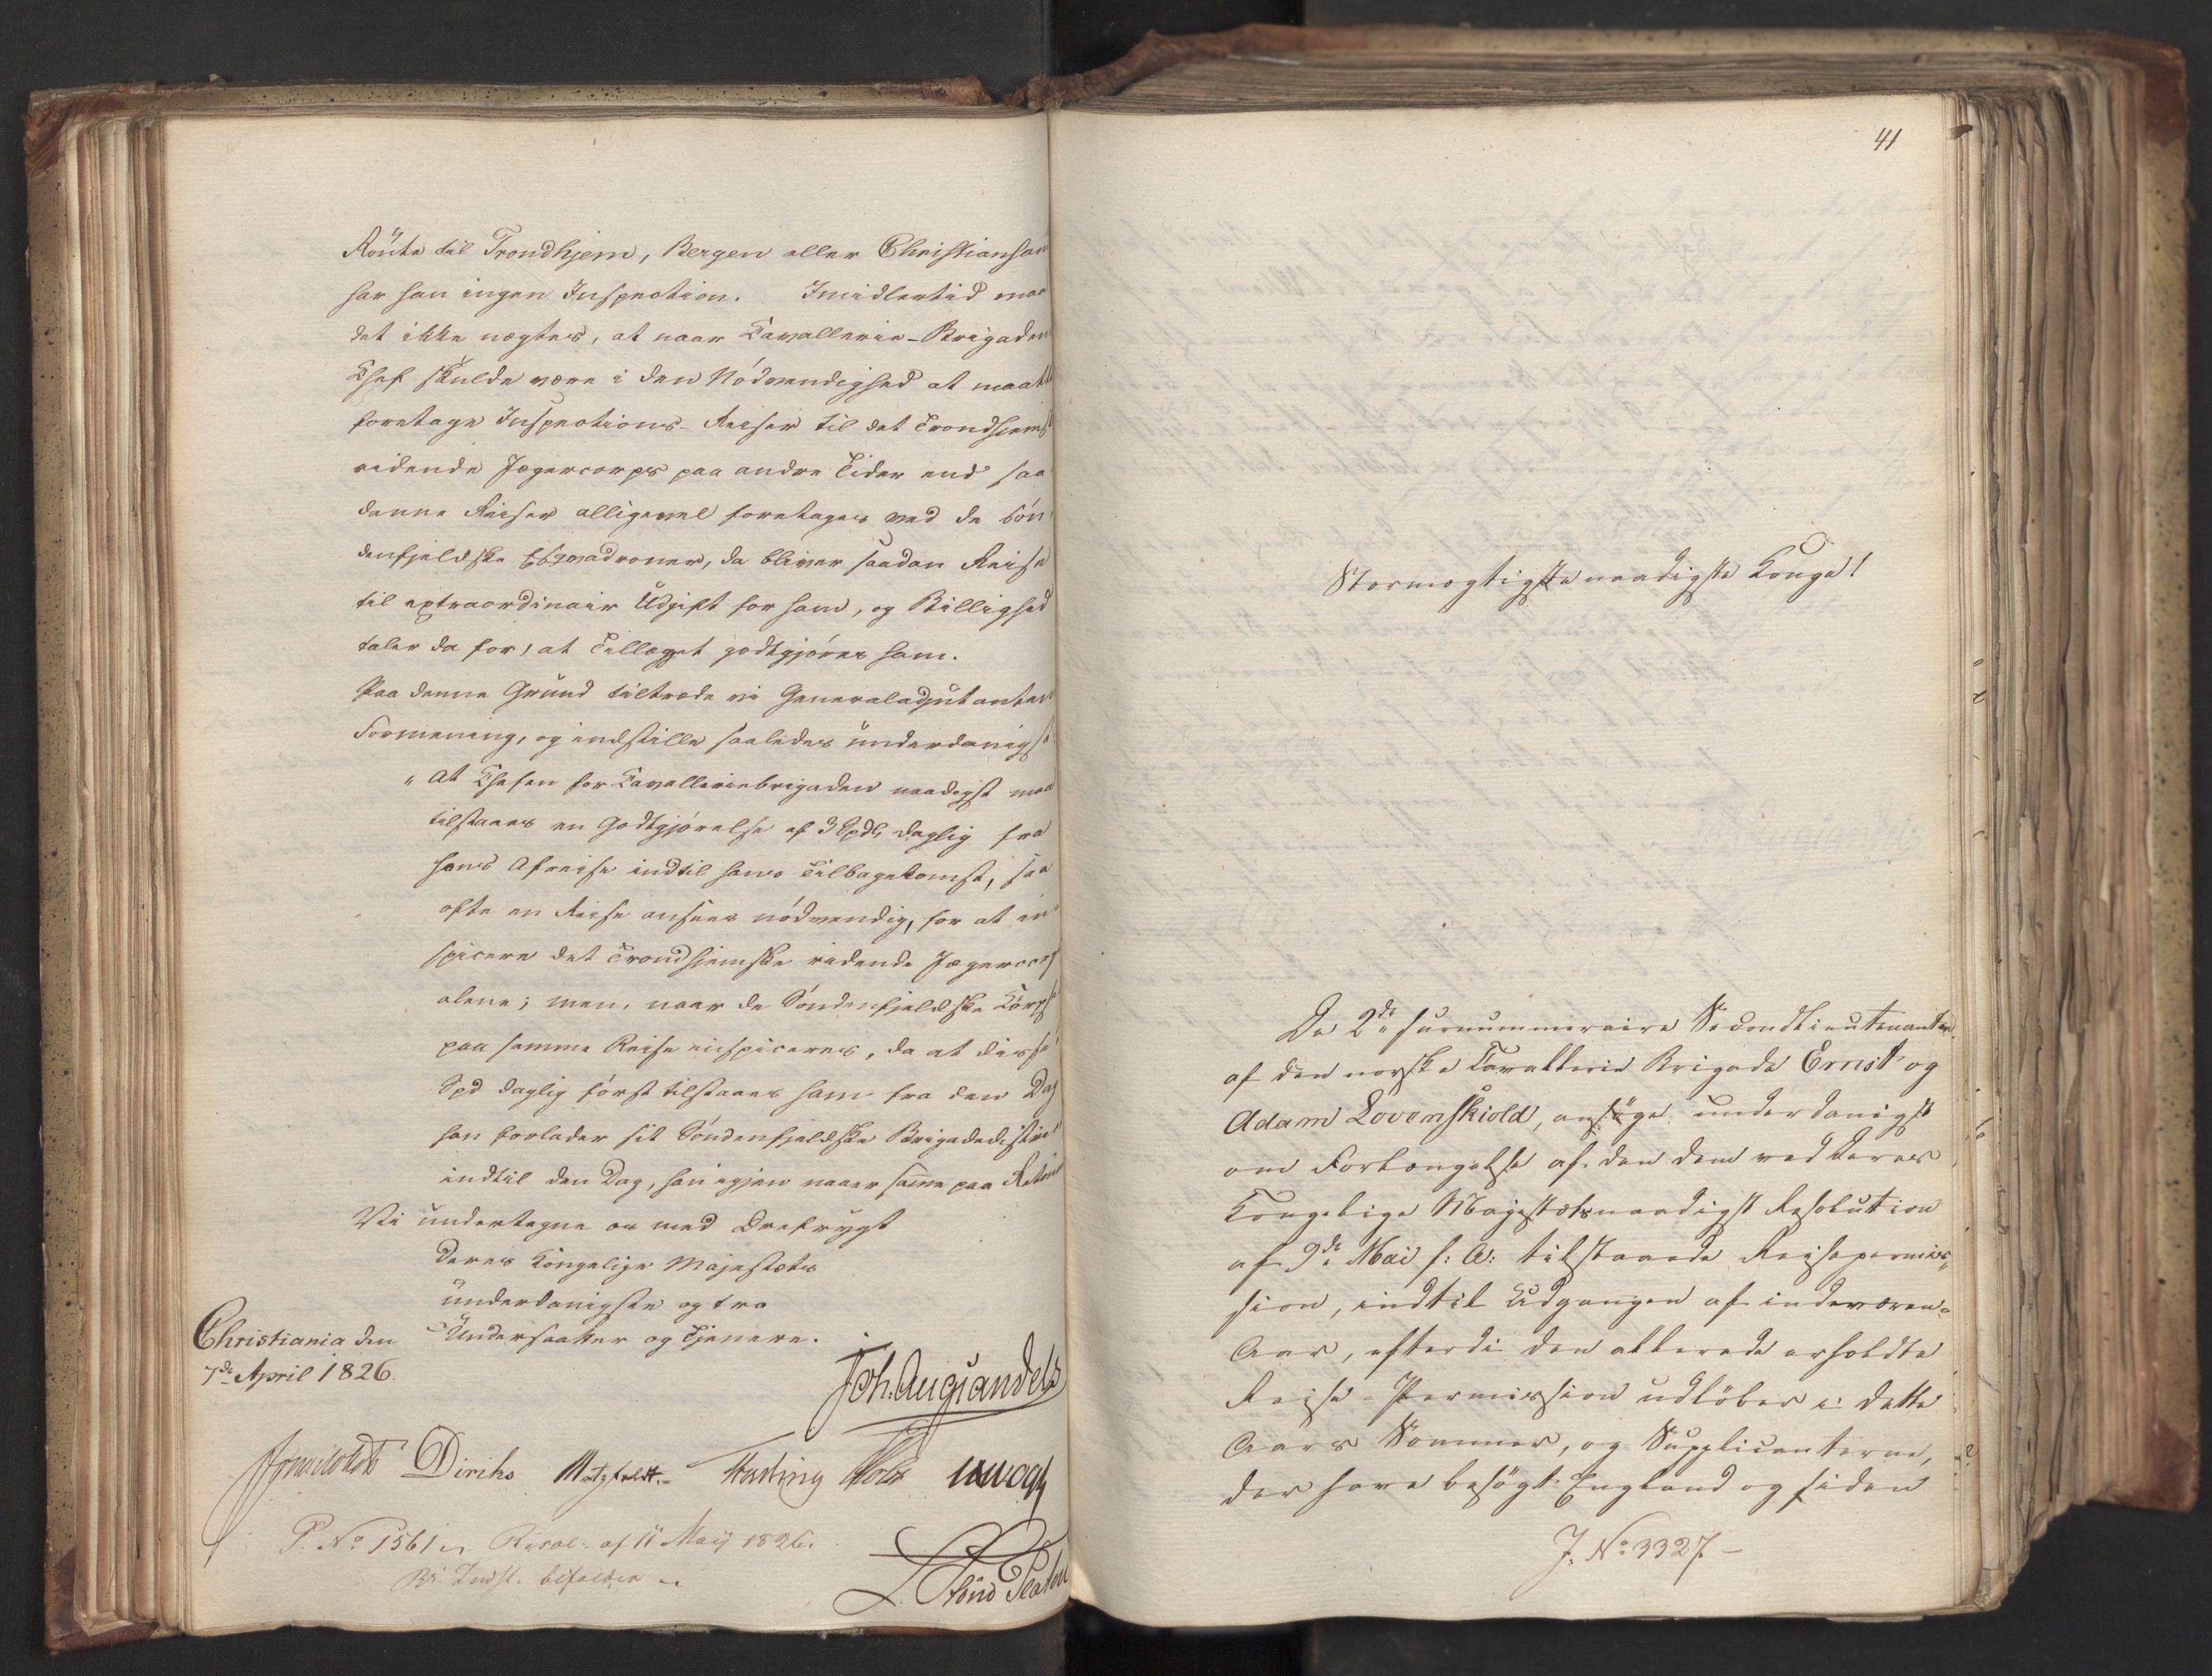 Route til Trondhjem, Bergen eller Christiansan
har han ingen Inspection. Imidlertid maa
det ikke nægtes, at naar Cavallerie-Brigaden
Chef skulde være i den Nödvendighed at maatt
foretage Inspections-Reiser til det Trondhjemsk
ridende Jægercorps paa andre Tider end saa
danne Reiser alligevel foretages ved de Sön
denfjeldske Esqvadroner, da bliver saadan Reise
til extraordinair Udgift for ham, og Billighed
taler da for, at Tillægget godtgjöres ham.
Paa denne Grund tiltræde vi Generaladjutanten
Formening, og indstille saaledes underdanigst
" At Chefen for Cavalleriebrigaden naadigst maa
tilstaaes en Godtgjörelse af 3 Spd daglig fra
hans Afreise indtil hans Tilbagekomst, saa
ofte en Reise ansees nödvendig, for at in
spicere det Trondhjemske ridende Jægercorps
alene; men, naar de Söndenfjeldske Corps
paa samme Reise inspiceres, da at disse
Spd daglig först tilstaaes ham fra den Dag
han forlader sit Söndenfjeldske Brigadedistrict
indtil den Dag, han igjen naaer samme paa Retour
Vi undertegne os med Ærefrygt
Deres Kongelige Majestæts
underdanigste og tro
Undersaatter og Tjenere.
Christiania den
7de April 1826.
Joh. Aug Sandels
Sommerfeldt Diriks Motzfeldt Fasting Holst Vogt
P. No 1561 Resol. af 11 Maij 1826.
Indst. bifaldes
41
Stormægtigste naadigste Konge!
De 2de surnummeraire Secondlieutenanter
af den norske Cavallerie Brigade Ernst og
Adam Lövenskiold, ansöge underdanigst
om Forlængelse af den dem ved Deres
Kongelige Majestæts naadigst Resolution
af 9de Mai f: A: tilstaaede Reisepermis„
sion, indtil Udgangen af indeværen-
Aar, efterdi den allerede erholdte
Reise-Permission udlöber i dette
Aars Sommer, og Supplicanterne,
der have besögt England og siden
J. No 3327.-